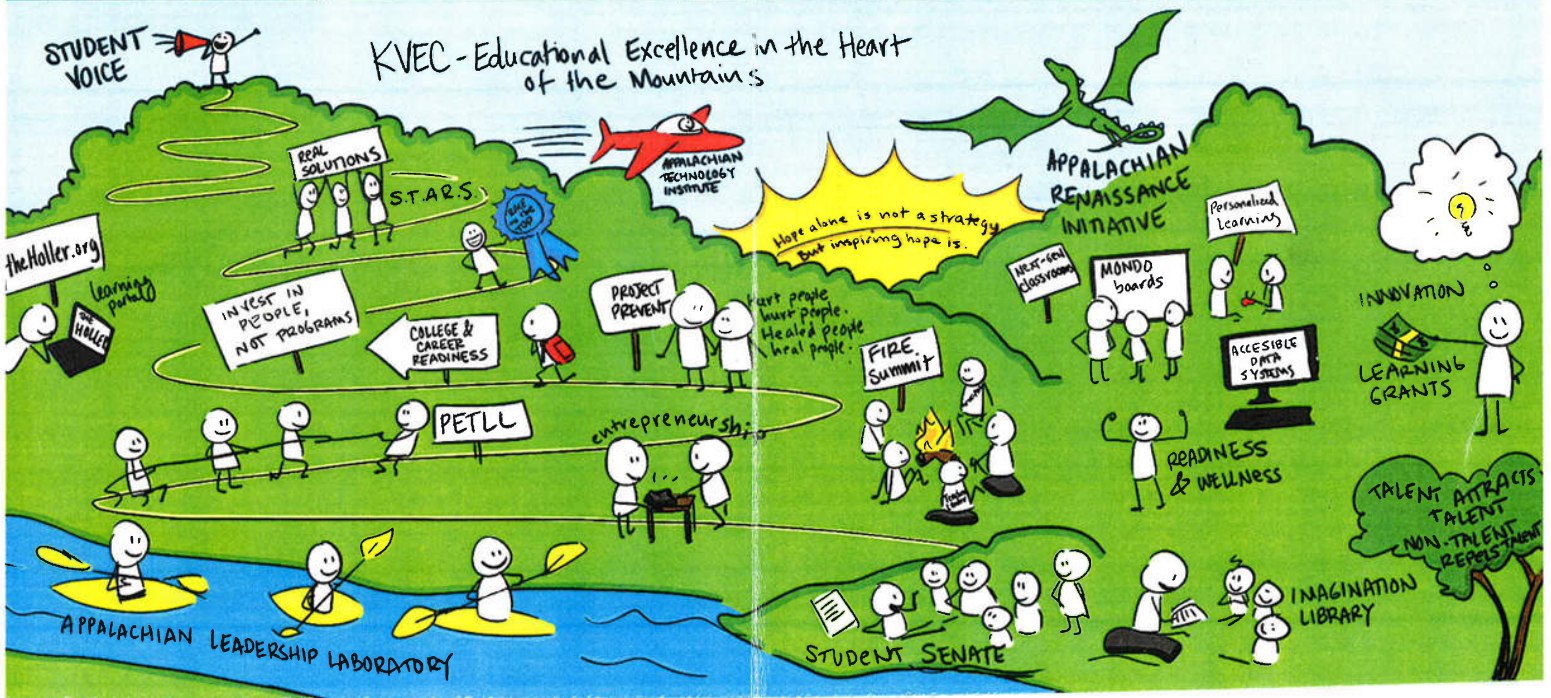 STUDENT
VOICE
KVEC - Educational Excellence in the Heart
of the Mountains
REAL
SOLUTIONS
S.T.A.R.S.
RACE
to the
TOP
APPALACHIAN
TECHNOLOGY
INSTITUTE
Hope alone is not a strategy
But inspiring hope is.
APPALACHIAN
RENAISSANCE
INITIATIVE
Personalized
Learning
NEXT-GEN
classrooms
MONDO
boards
theHoller.org
learning
portal
THE
HOLLER
INVEST IN
PEOPLE,
NOT PROGRAMS
COLLEGE &
CAREER
READINESS
PROJECT
PREVENT
Hurt people
hurt people.
Healed people
heal people.
FIRE
Summit
ACCESIBLE
DATA
SYSTEMS
INNOVATION
LEARNING
GRANTS
PETLL
entrepreneurship
READINESS
& WELLNESS
TALENT ATTRACTS
TALENT
NON-TALENT
REPELS TALENT
APPALACHIAN LEADERSHIP LABORATORY
STUDENT SENATE
IMAGINATION
LIBRARY